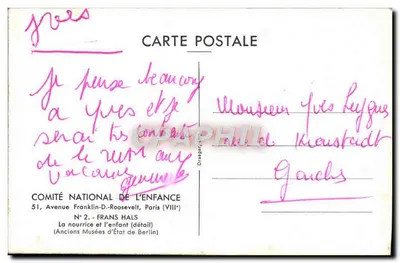 Yves
CARTE POSTALE
Je pense beaucoup
a Yves et je
serai très content
de le voir aux
vacances
Monsieur Yves
rue de
COMITÉ NATIONAL DE L'ENFANCE
51, Avenue Franklin-D.-Roosevelt, Paris (VIIIᵉ)
N° 2. - FRANS HALS
La nourrice et l'enfant (détail)
(Anciens Musées d'État de Berlin)